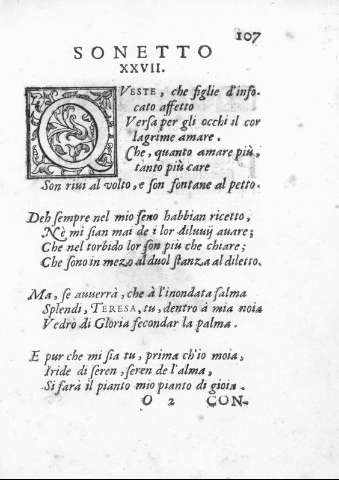 107
SONETTO
XXVII.
QVESTE, che figlie d'info-
cato affetto
Versa per gli occhi il cor
lagrime amare.
Che, quanto amare più,
tanto più care
Son riui al volto, e son fontane al petto.
Deh sempre nel mio seno habbian ricetto,
Nè mi sian mai de i lor diluuij auare;
Che nel torbido lor son più che chiare;
Che sono in mezo al duol stanza al diletto.
Ma, se auuerrà, che à l'inondata salma
Splendi, TERESA, tu, dentro à mia noia
Vedrò di Gloria fecondar la palma.
E pur che mi sia tu, prima ch'io moia,
Iride di seren, seren de l'alma,
Si farà il pianto mio pianto di gioia.
O 2 CON-